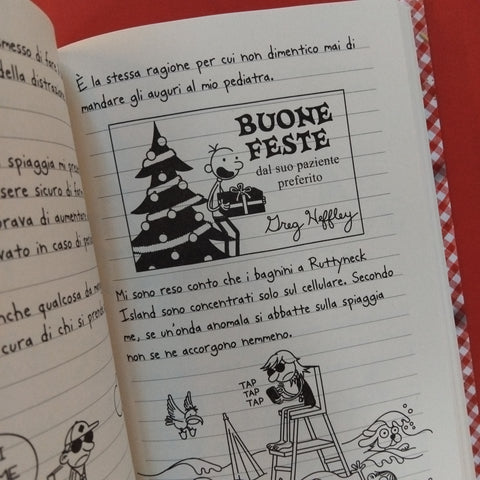 messo di
della
È la stessa ragione per cui non dimentico mai di
mandare gli auguri al mio pediatra.
BUONE
FESTE
dal suo paziente
preferito
Greg Heffley
spiaggia mi
sere sicuro di
rava di
vato in caso di
nche qualcosa da
cura di chi si
Mi sono reso conto che i bagnini a Ruttyneck
Island sono concentrati solo sul cellulare. Secondo
me, se un'onda anomala si abbatte sulla spiaggia
non se ne accorgono nemmeno.
TAP
TAP
TAP